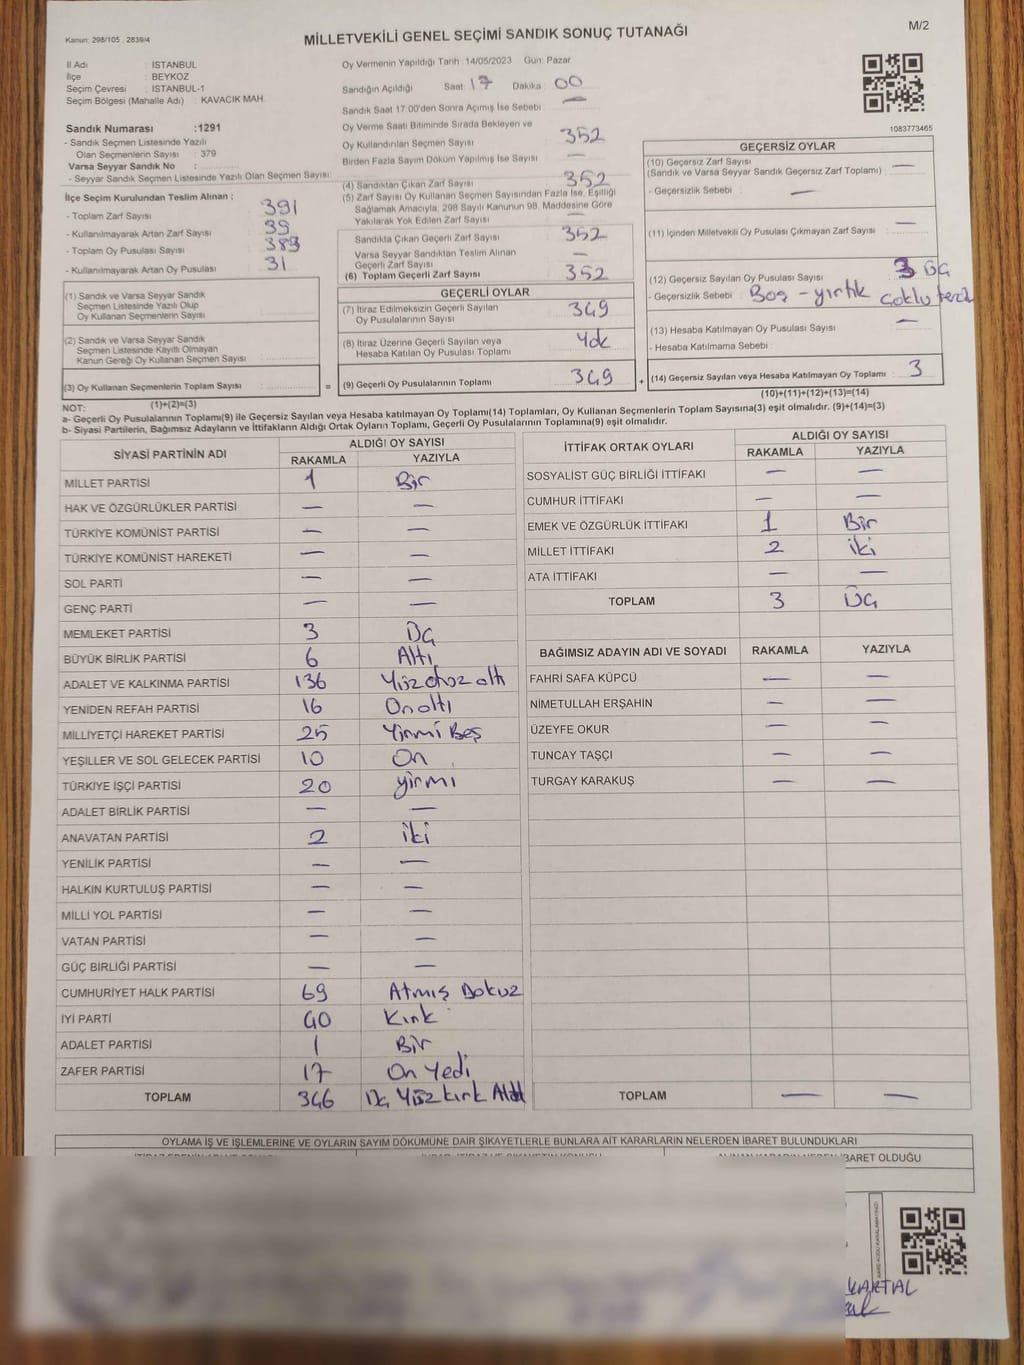 M/2
Kanun: 298/105 , 2839/4
MİLLETVEKİLİ GENEL SEÇİMİ SANDIK SONUÇ TUTANAĞI
İl Adı : İSTANBUL
İlçe : BEYKOZ
Seçim Çevresi : İSTANBUL-1
Seçim Bölgesi (Mahalle Adı) : KAVACIK MAH.
Sandık Numarası :1291
- Sandık Seçmen Listesinde Yazılı
Olan Seçmenlerin Sayısı : 379
Varsa Seyyar Sandık No :
- Seyyar Sandık Seçmen Listesinde Yazılı Olan Seçmen Sayısı:
İlçe Seçim Kurulundan Teslim Alınan :
- Toplam Zarf Sayısı 391
- Kullanılmayarak Artan Zarf Sayısı 39
- Toplam Oy Pusulası Sayısı 383
- Kullanılmayarak Artan Oy Pusulası 31
(1) Sandık ve Varsa Seyyar Sandık
Seçmen Listesinde Yazılı Olup
Oy Kullanan Seçmenlerin Sayısı
(2) Sandık ve Varsa Seyyar Sandık
Seçmen Listesinde Kayıtlı Olmayan
Kanun Gereği Oy Kullanan Seçmen Sayısı
(3) Oy Kullanan Seçmenlerin Toplam Sayısı =
(1)+(2)=(3)
Oy Vermenin Yapıldığı Tarih :14/05/2023 Gün: Pazar
Sandığın Açıldığı Saat 17 Dakika 00
Sandık Saat 17:00'den Sonra Açılmış İse Sebebi : —
Oy Verme Saati Bitiminde Sırada Bekleyen ve
Oy Kullandırılan Seçmen Sayısı 352
Birden Fazla Sayım Döküm Yapılmış İse Sayısı —
(4) Sandıktan Çıkan Zarf Sayısı 352
(5) Zarf Sayısı Oy Kullanan Seçmen Sayısından Fazla İse, Eşitliği
Sağlamak Amacıyla, 298 Sayılı Kanunun 98. Maddesine Göre
Yakılarak Yok Edilen Zarf Sayısı —
Sandıkta Çıkan Geçerli Zarf Sayısı 352
Varsa Seyyar Sandıktan Teslim Alınan
Geçerli Zarf Sayısı —
(6) Toplam Geçerli Zarf Sayısı 352
GEÇERLİ OYLAR
(7) İtiraz Edilmeksizin Geçerli Sayılan
Oy Pusulalarının Sayısı 349
(8) İtiraz Üzerine Geçerli Sayılan veya
Hesaba Katılan Oy Pusulası Toplamı Yok
(9) Geçerli Oy Pusulalarının Toplamı 349 +
1083773465
GEÇERSİZ OYLAR
(10) Geçersiz Zarf Sayısı —
(Sandık ve Varsa Seyyar Sandık Geçersiz Zarf Toplamı)
- Geçersizlik Sebebi : —
(11) İçinden Milletvekili Oy Pusulası Çıkmayan Zarf Sayısı —
(12) Geçersiz Sayılan Oy Pusulası Sayısı 3 Üç
- Geçersizlik Sebebi : Boş - yırtık çoklu
(13) Hesaba Katılmayan Oy Pusulası Sayısı —
- Hesaba Katılmama Sebebi :
(14) Geçersiz Sayılan veya Hesaba Katılmayan Oy Toplamı 3
(10)+(11)+(12)+(13)=(14)
NOT:
a- Geçerli Oy Pusulalarının Toplamı(9) ile Geçersiz Sayılan veya Hesaba katılmayan Oy Toplamı(14) Toplamları, Oy Kullanan Seçmenlerin Toplam Sayısına(3) eşit olmalıdır. (9)+(14)=(3)
b- Siyasi Partilerin, Bağımsız Adayların ve İttifakların Aldığı Ortak Oyların Toplamı, Geçerli Oy Pusulalarının Toplamına(9) eşit olmalıdır.
SİYASİ PARTİNİN ADI ALDIĞI OY SAYISI
RAKAMLA YAZIYLA
MİLLET PARTİSİ 1 Bir
HAK VE ÖZGÜRLÜKLER PARTİSİ — —
TÜRKİYE KOMÜNİST PARTİSİ — —
TÜRKİYE KOMÜNİST HAREKETİ — —
SOL PARTİ — —
GENÇ PARTİ — —
MEMLEKET PARTİSİ 3 Üç
BÜYÜK BİRLİK PARTİSİ 6 Altı
ADALET VE KALKINMA PARTİSİ 136 Yüzotuz altı
YENİDEN REFAH PARTİSİ 16 Onaltı
MİLLİYETÇİ HAREKET PARTİSİ 25 Yirmi Beş
YEŞİLLER VE SOL GELECEK PARTİSİ 10 On
TÜRKİYE İŞÇİ PARTİSİ 20 yirmi
ADALET BİRLİK PARTİSİ — —
ANAVATAN PARTİSİ 2 iki
YENİLİK PARTİSİ — —
HALKIN KURTULUŞ PARTİSİ — —
MİLLİ YOL PARTİSİ — —
VATAN PARTİSİ — —
GÜÇ BİRLİĞİ PARTİSİ — —
CUMHURİYET HALK PARTİSİ 69 Atmış Dokuz
İYİ PARTİ 40 Kırk
ADALET PARTİSİ 1 Bir
ZAFER PARTİSİ 17 On Yedi
TOPLAM 346 Üç Yüz kırk Altı
İTTİFAK ORTAK OYLARI ALDIĞI OY SAYISI
RAKAMLA YAZIYLA
SOSYALİST GÜÇ BİRLİĞİ İTTİFAKI — —
CUMHUR İTTİFAKI — —
EMEK VE ÖZGÜRLÜK İTTİFAKI 1 Bir
MİLLET İTTİFAKI 2 iki
ATA İTTİFAKI — —
TOPLAM 3 Üç
BAĞIMSIZ ADAYIN ADI VE SOYADI RAKAMLA YAZIYLA
FAHRİ SAFA KÜPCÜ — —
NİMETULLAH ERŞAHİN — —
ÜZEYFE OKUR — —
TUNCAY TAŞÇI — —
TURGAY KARAKUŞ — —
TOPLAM — —
OYLAMA İŞ VE İŞLEMLERİNE VE OYLARIN SAYIM DÖKÜMÜNE DAİR ŞİKAYETLERLE BUNLARA AİT KARARLARIN NELERDEN İBARET BULUNDUKLARI
İBARET OLDUĞU
KARTAL